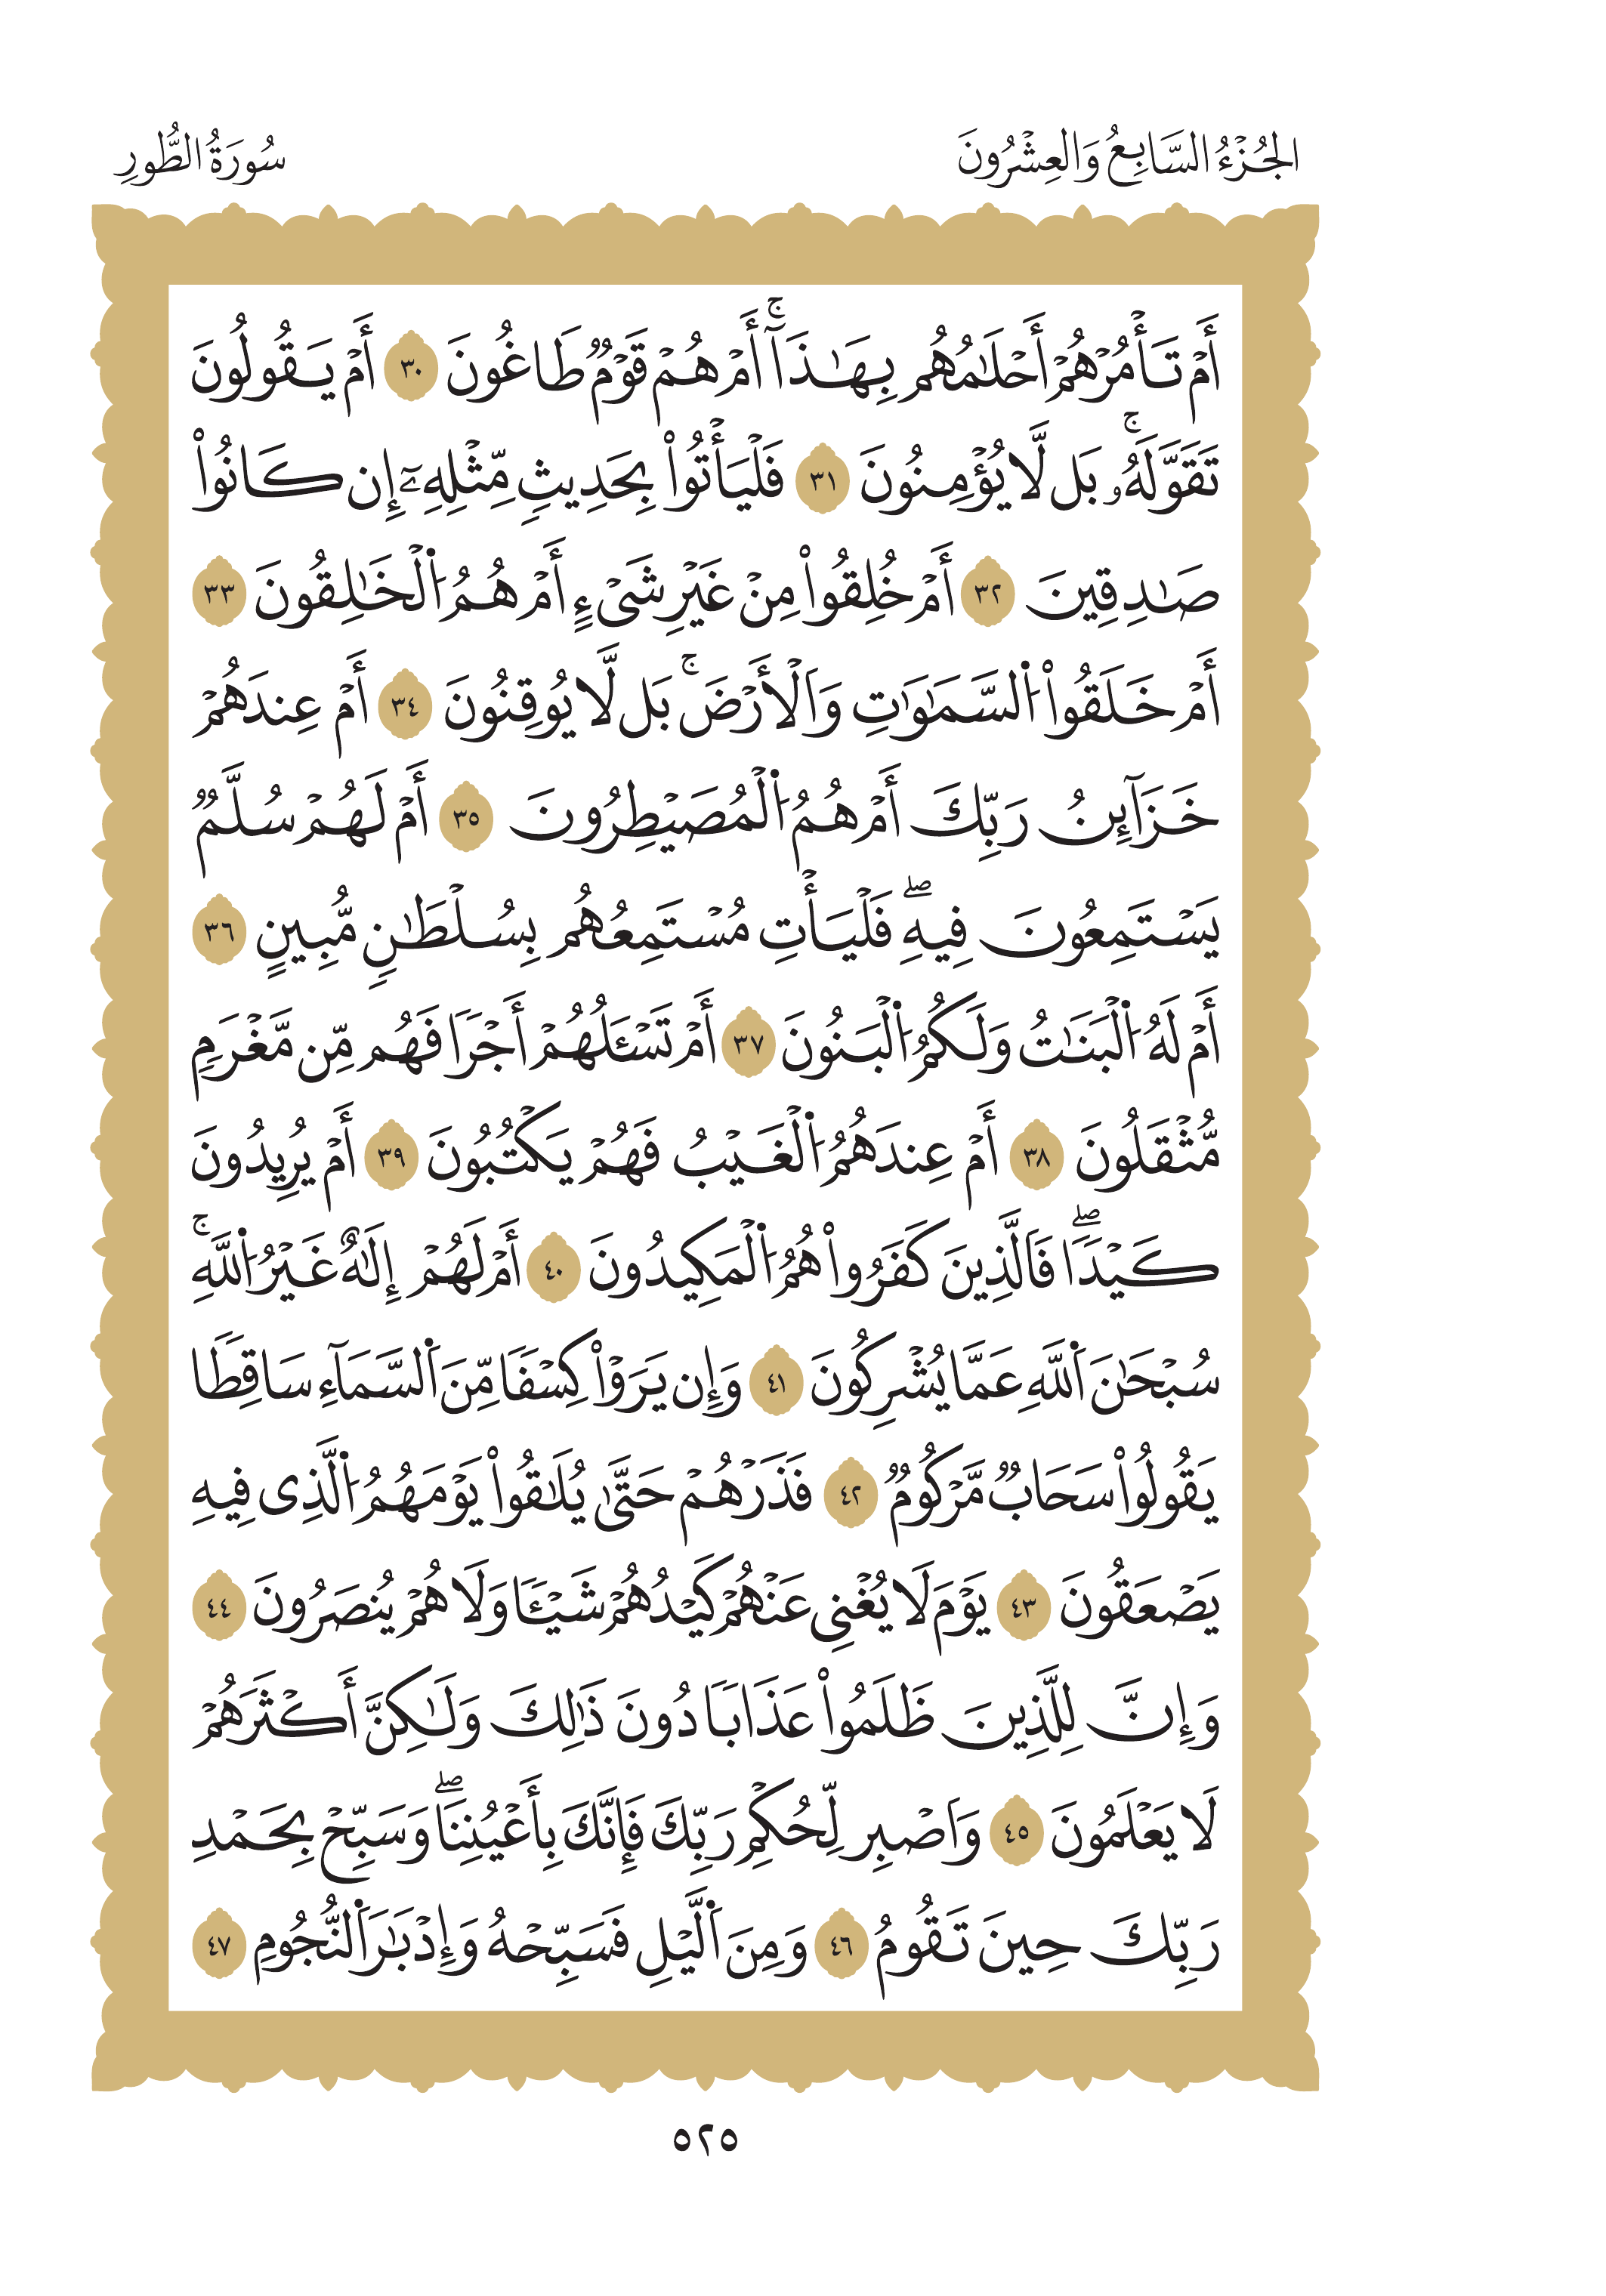 الجُزْءُ السَّابِعُ وَالعِشْرُونَ
سُورَةُ الطُّورِ
أَمۡ تَأۡمُرُهُمۡ أَحۡلَٰمُهُم بِهَٰذَآۚ أَمۡ هُمۡ قَوۡمٞ طَاغُونَ ٣٠ أَمۡ يَقُولُونَ
تَقَوَّلَهُۥۚ بَل لَّا يُؤۡمِنُونَ ٣١ فَلۡيَأۡتُواْ بِحَدِيثٖ مِّثۡلِهِۦٓ إِن كَانُواْ
صَٰدِقِينَ ٣٢ أَمۡ خُلِقُواْ مِنۡ غَيۡرِ شَيۡءٍ أَمۡ هُمُ ٱلۡخَٰلِقُونَ ٣٣
أَمۡ خَلَقُواْ ٱلسَّمَٰوَٰتِ وَٱلۡأَرۡضَۚ بَل لَّا يُوقِنُونَ ٣٤ أَمۡ عِندَهُمۡ
خَزَآئِنُ رَبِّكَ أَمۡ هُمُ ٱلۡمُصَيۡطِرُونَ ٣٥ أَمۡ لَهُمۡ سُلَّمٞ
يَسۡتَمِعُونَ فِيهِۖ فَلۡيَأۡتِ مُسۡتَمِعُهُم بِسُلۡطَٰنٖ مُّبِينٍ ٣٦
أَمۡ لَهُ ٱلۡبَنَٰتُ وَلَكُمُ ٱلۡبَنُونَ ٣٧ أَمۡ تَسۡـَٔلُهُمۡ أَجۡرٗا فَهُم مِّن مَّغۡرَمٖ
مُّثۡقَلُونَ ٣٨ أَمۡ عِندَهُمُ ٱلۡغَيۡبُ فَهُمۡ يَكۡتُبُونَ ٣٩ أَمۡ يُرِيدُونَ
كَيۡدٗاۖ فَٱلَّذِينَ كَفَرُواْ هُمُ ٱلۡمَكِيدُونَ ٤٠ أَمۡ لَهُمۡ إِلَٰهٌ غَيۡرُ ٱللَّهِۚ
سُبۡحَٰنَ ٱللَّهِ عَمَّا يُشۡرِكُونَ ٤١ وَإِن يَرَوۡاْ كِسۡفٗا مِّنَ ٱلسَّمَآءِ سَاقِطٗا
يَقُولُواْ سَحَابٞ مَّرۡكُومٞ ٤٢ فَذَرۡهُمۡ حَتَّىٰ يُلَٰقُواْ يَوۡمَهُمُ ٱلَّذِي فِيهِ
يَصۡعَقُونَ ٤٣ يَوۡمَ لَا يُغۡنِي عَنۡهُمۡ كَيۡدُهُمۡ شَيۡـٔٗا وَلَا هُمۡ يُنصَرُونَ ٤٤
وَإِنَّ لِلَّذِينَ ظَلَمُواْ عَذَابٗا دُونَ ذَٰلِكَ وَلَٰكِنَّ أَكۡثَرَهُمۡ
لَا يَعۡلَمُونَ ٤٥ وَٱصۡبِرۡ لِحُكۡمِ رَبِّكَ فَإِنَّكَ بِأَعۡيُنِنَاۖ وَسَبِّحۡ بِحَمۡدِ
رَبِّكَ حِينَ تَقُومُ ٤٦ وَمِنَ ٱلَّيۡلِ فَسَبِّحۡهُ وَإِدۡبَٰرَ ٱلنُّجُومِ ٤٧
٥٢٥